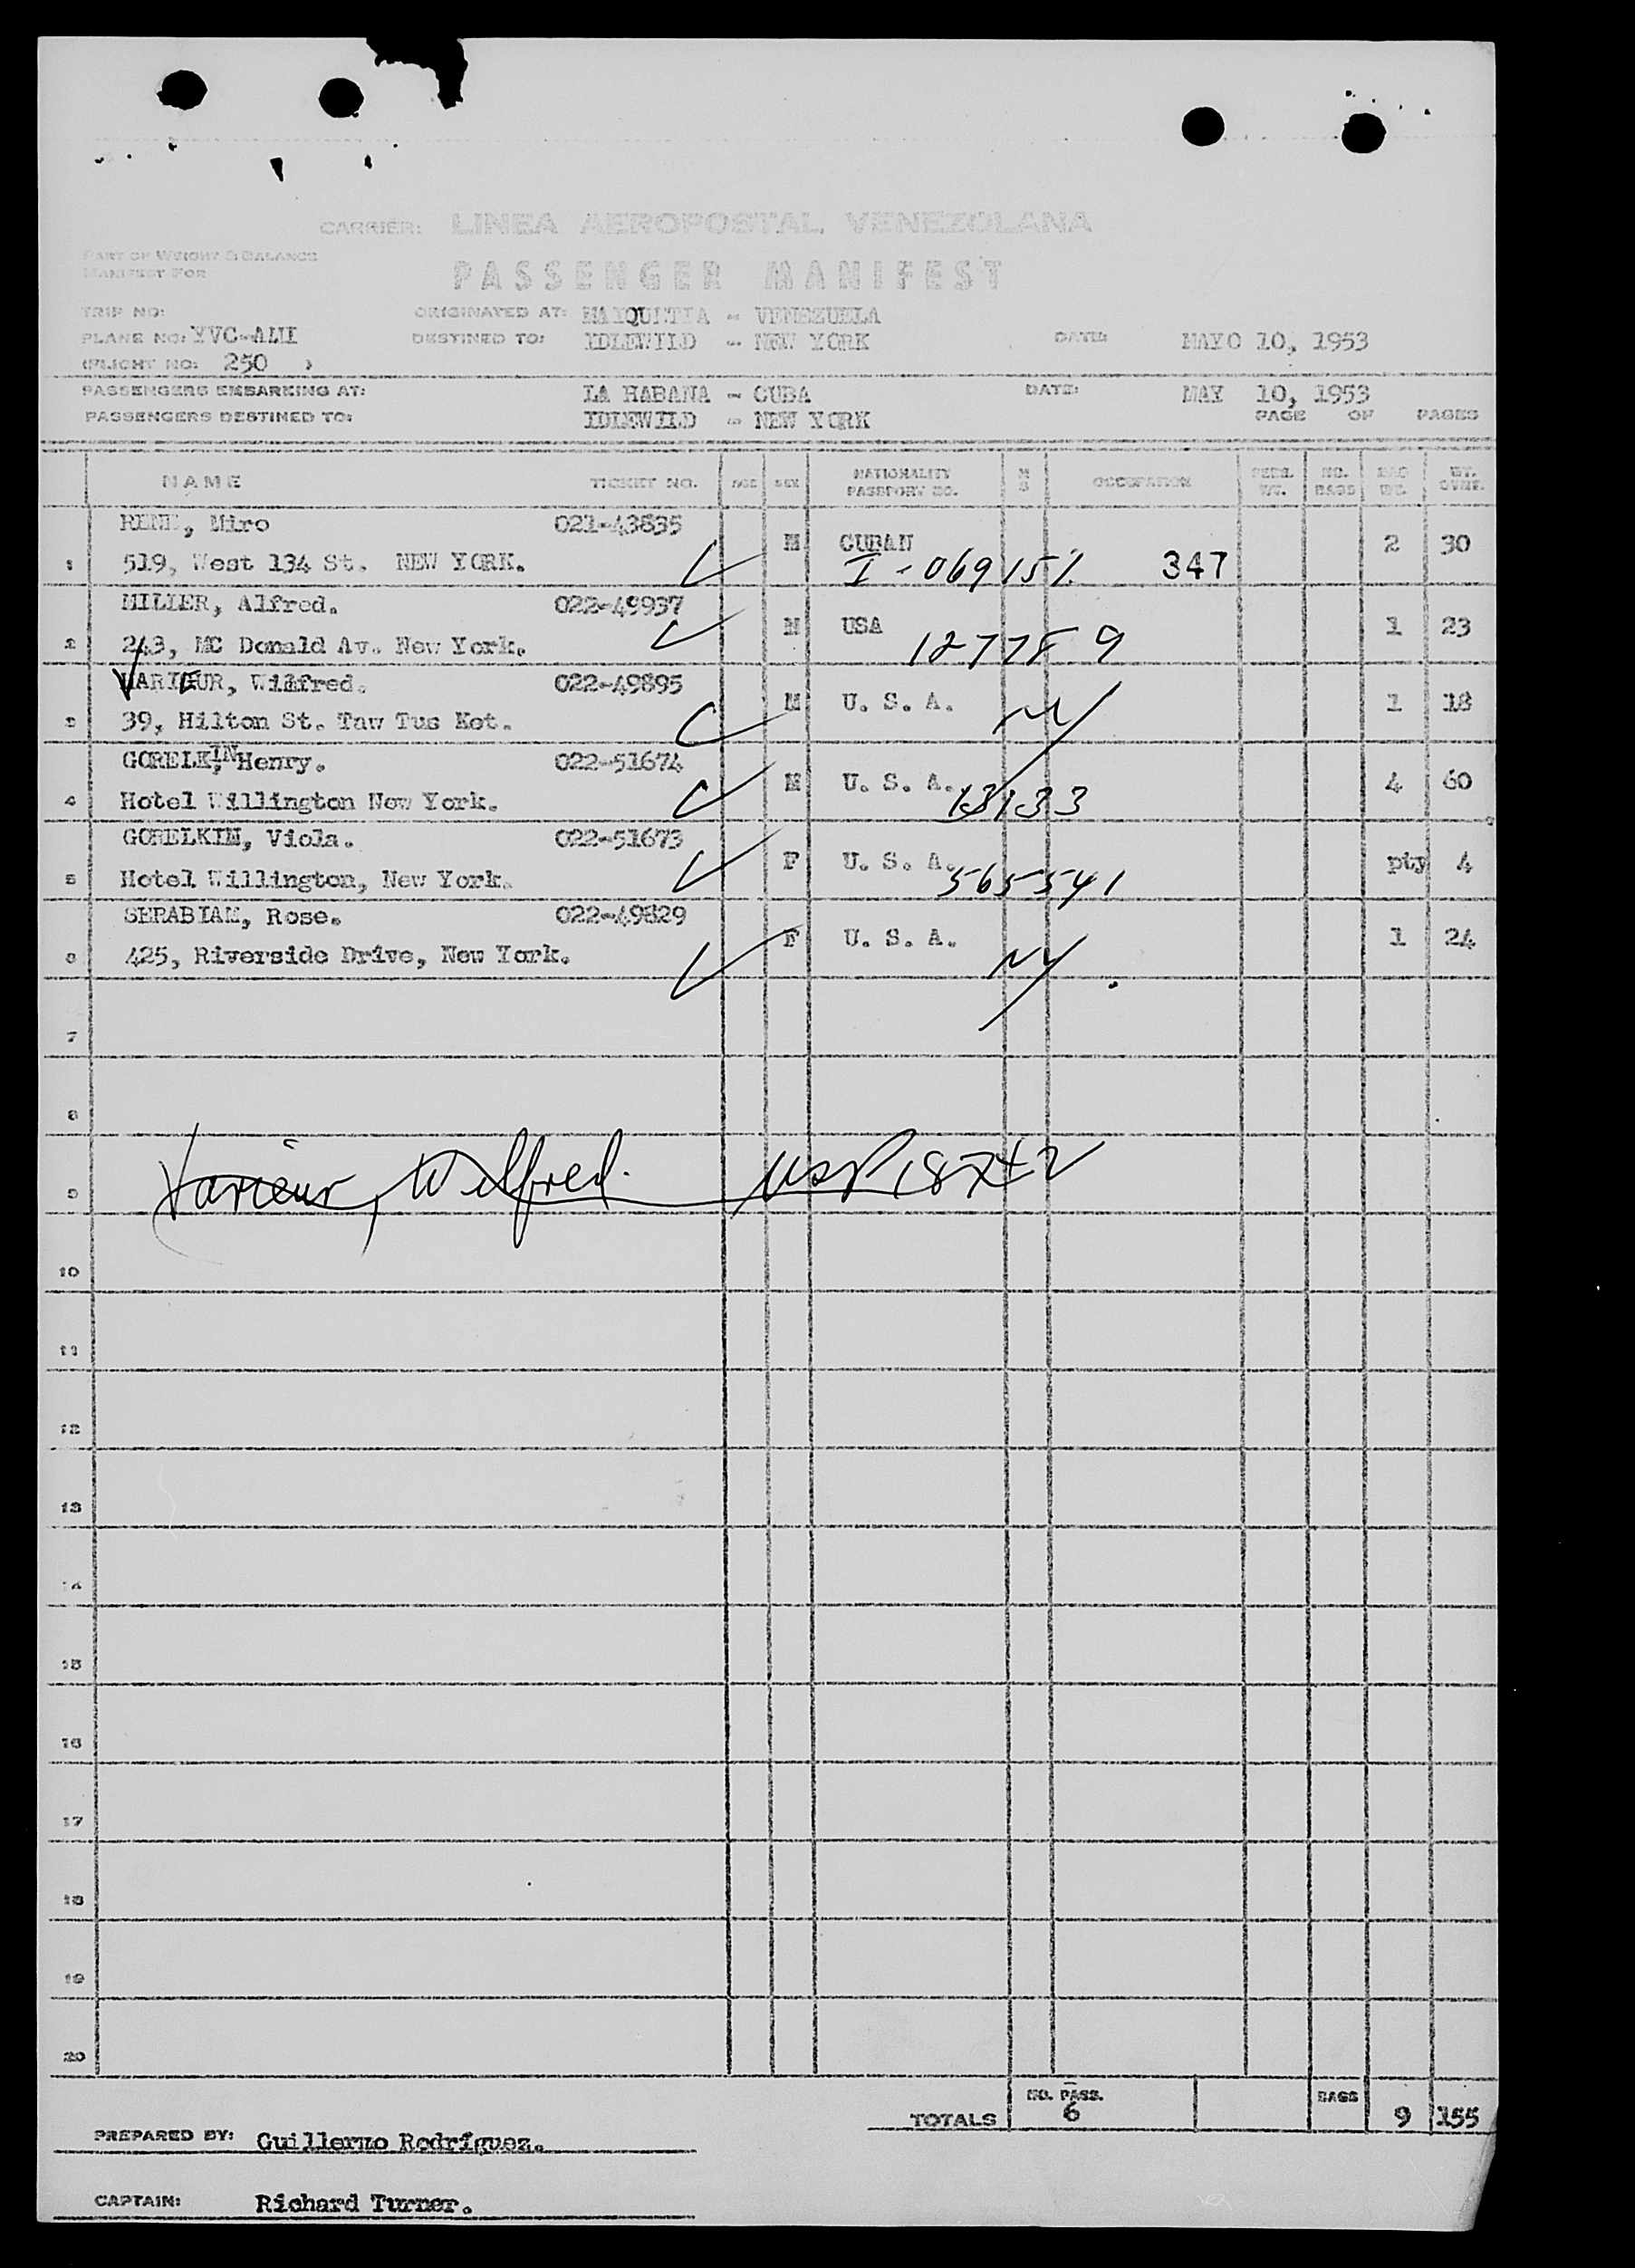 CARRIER: LINEA AEROPOSTAL VENEZOLANA
PART OF WEIGHT & BALANCE
MANIFEST FOR
PASSENGER MANIFEST
TRIP NO:
ORIGINATED AT: MAIQUETIA - VENEZUELA
PLANE NO: YVC-AMI DESTINED TO: IDLEWILD - NEW YORK DATE: MAYO 10, 1953
(FLIGHT NO: 250 )
PASSENGERS EMBARKING AT: LA HABANA - CUBA DATE: MAY 10, 1953
PASSENGERS DESTINED TO: IDLEWILD - NEW YORK PAGE OF PAGES
NAME TICKET NO. AGE SEX NATIONALITY PASSPORT NO. M S OCCUPATION PERS. WT. NO. BAGS BAG WT. WT. CUME.
RENE, Miro 021-43835
1 519, West 134 St. NEW YORK. M CUBAN I-069151 347 2 30
MILLER, Alfred. 022-49937
2 243, MC Donald Av. New York. M USA 127789 1 23
VARIEUR, Wilfred. 022-49895
3 39, Hilton St. Taw Tus Ket. M U. S. A. 1 18
GORELKIN, Henry. 022-51674
4 Hotel Willington New York. M U. S. A. 13133 4 60
GORELKIN, Viola. 022-51673
5 Hotel Willington, New York. F U. S. A. 565541 pty 4
SERABIAN, Rose. 022-49829
6 425, Riverside Drive, New York. F U. S. A. 1 24
7
8
9 Varieur, Wilfred. USP 18742
10
11
12
13
14
15
16
17
18
19
20
TOTALS NO. PASS. 6 BAGS 9 155
PREPARED BY: Guillermo Rodríguez.
CAPTAIN: Richard Turner.